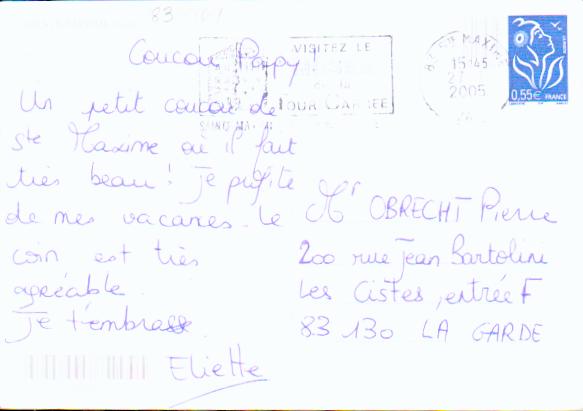 83
Coucou Papy!
VISITEZ LE
TOUR CARREE
STE MAXIME
15H45
2005
0,55€ FRANCE
Un petit coucou de
Ste Maxime où il fait
très beau! Je profite
de mes vacances. Le
coin est très
agréable.
Je t'embrasse.
Eliette
Mr OBRECHT Pierre
200 rue Jean Bartolini
Les Cistes, entrée F
83 130 LA GARDE